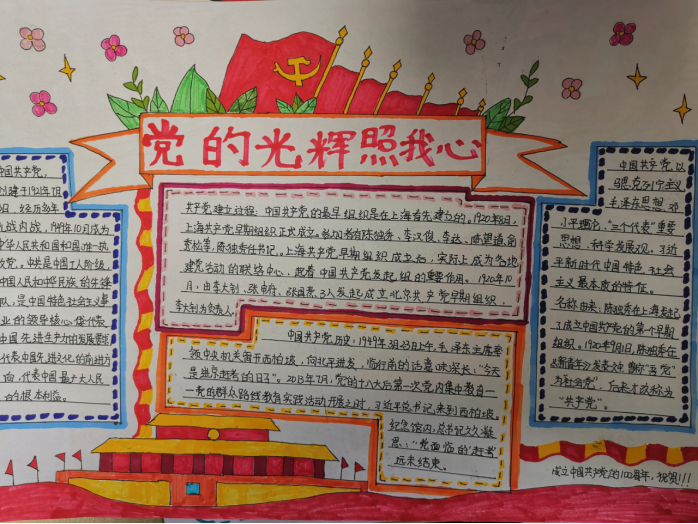 党的光辉照我心
中国共产党,
创建于1921年7月
抗战内战,1949年10月成为
中华人民共和国唯一执
政党。中共是中国工人阶级,
中国人民和中华民族的先锋
队,是中国特色社会主义事
业的领导核心,
中国先进生产力的发展要求
代表中国先进文化的前进方
向,代表中国最广大人民
的根本利益。
共产党建立过程:中国共产党的最早组织是在上海首先建立的。1920年8月,
上海共产党早期组织正式成立。参加者有陈独秀、李汉俊、李达、陈望道、俞
秀松等,陈独秀任书记。上海共产党早期组织成立后,实际上成为各地
建党活动的联络中心,起着中国共产党发起组的重要作用。1920年10
月,由李大钊、张申府、张国焘3人发起成立北京共产党早期组织
李大钊为负责人
中国共产党历史:1949年3月23日上午,毛泽东主席率
领中央机关离开西柏坡,向北平进发,临行前的话意味深长:“今天
是进京赶考的日子”。2013年7月,党的十八大后第一次党内集中教育—
—党的群众路线教育实践活动开展之时,习近平总书记来到西柏坡
纪念馆内,总书记久久凝
思:“党面临的‘赶考’
远未结束。
中国共产党以
马克思列宁主义
毛泽东思想、邓
小平理论、“三个代表”重要
思想、科学发展观、习近
平新时代中国特色社会
主义最本质的特征。
名称由来:陈独秀在上海发起
了成立中国共产党的第一个早期
组织。1920年9月1日,陈独秀在
为社会党”,后来才改称为
“共产党”。
成立中国共产党的100周年,祝贺!!!